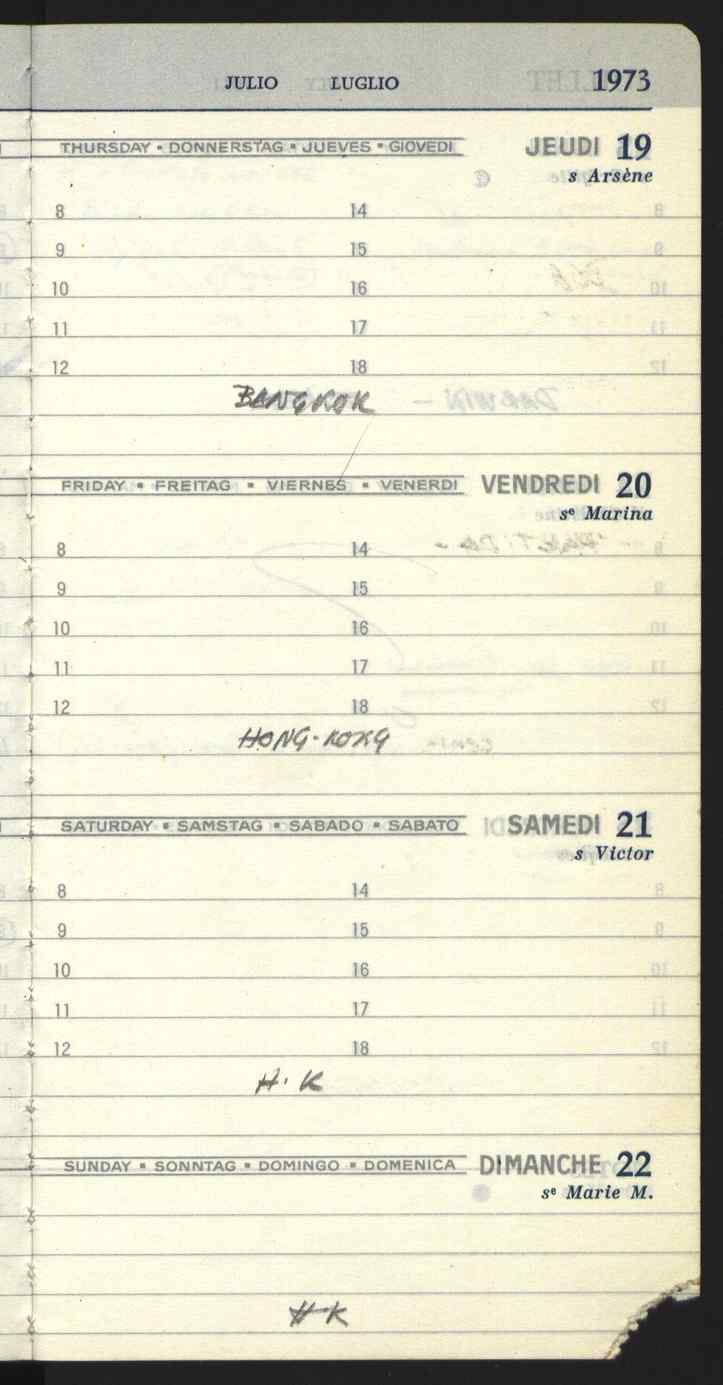 JULIO LUGLIO 1973
THURSDAY ▪ DONNERSTAG ▪ JUEVES ▪ GIOVEDI JEUDI 19
s Arsène
8 14
9 15
10 16
11 17
12 18
BANGKOK
FRIDAY ▪ FREITAG ▪ VIERNES ▪ VENERDI VENDREDI 20
sᵉ Marina
8 14
9 15
10 16
11 17
12 18
HONG-KONG
SATURDAY ▪ SAMSTAG ▪ SABADO ▪ SABATO SAMEDI 21
s Victor
8 14
9 15
10 16
11 17
12 18
H. K
SUNDAY ▪ SONNTAG ▪ DOMINGO ▪ DOMENICA DIMANCHE 22
sᵉ Marie M.
H K